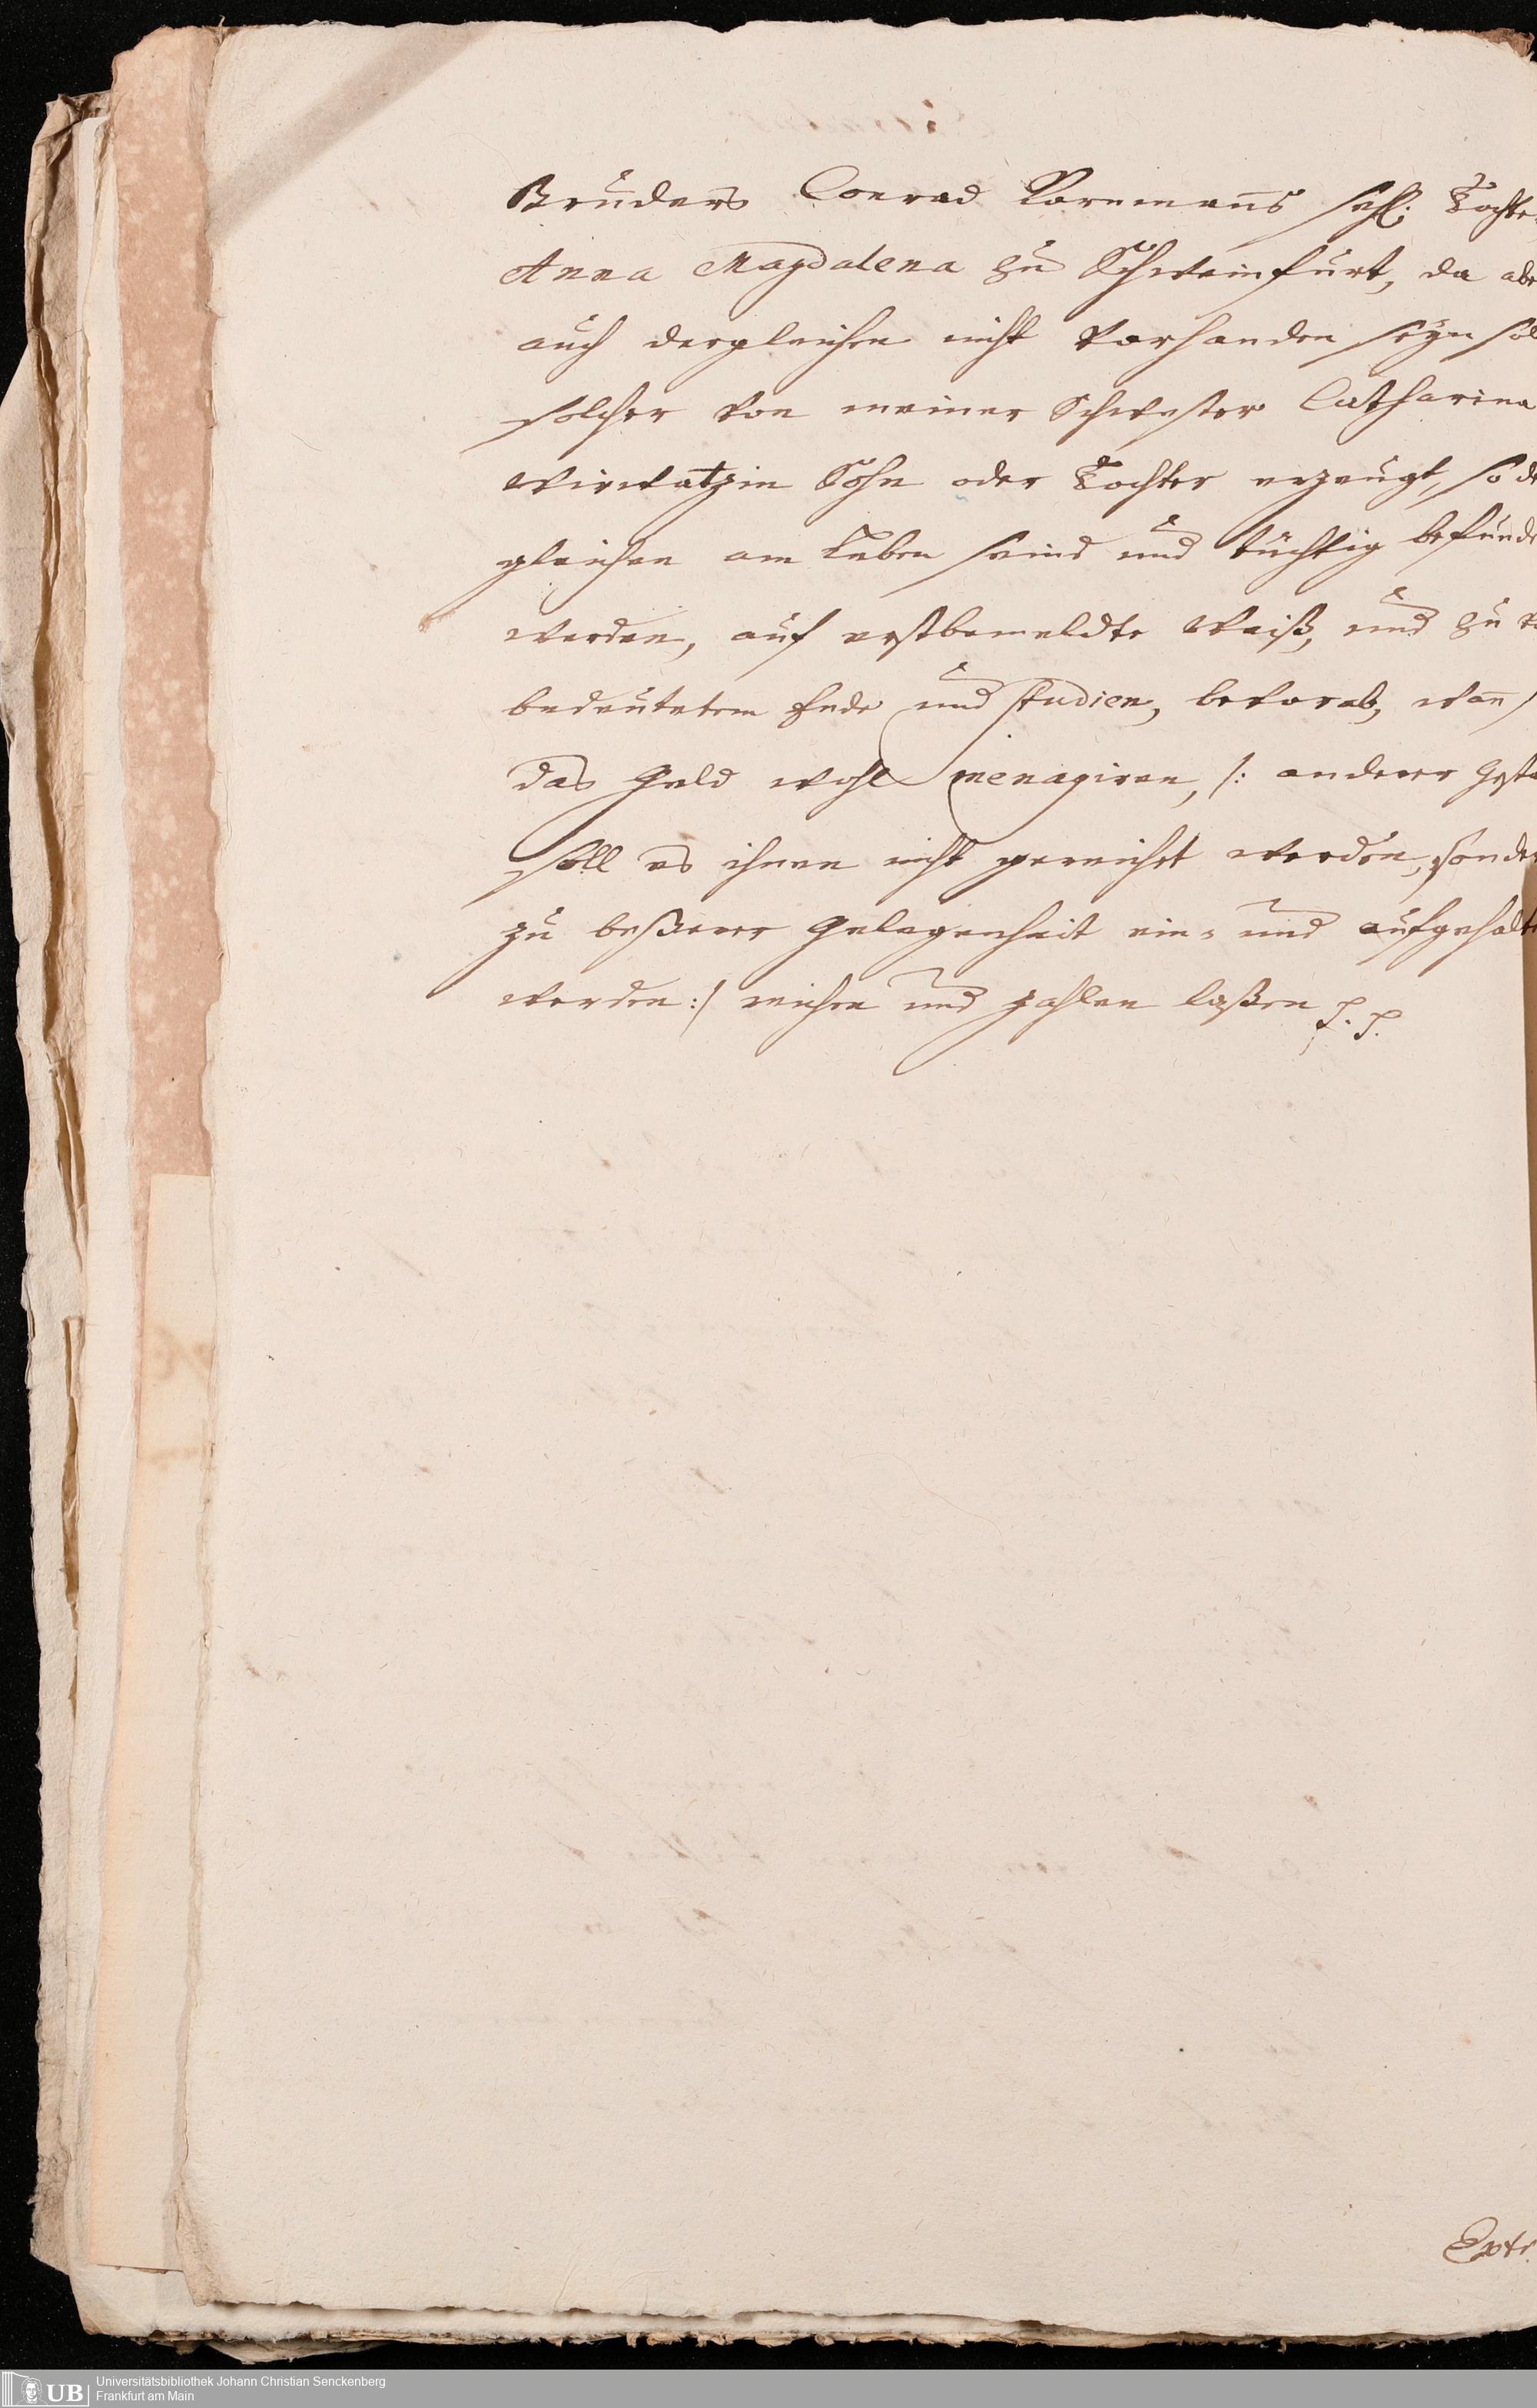 Bruders Conrad Bornmanns seel. Tochter
Anna Magdalena zu Schweinfurt, da aber
auch dergleichen nicht vorhanden seyn sol
solcher von meiner Schwester Catharina
Sohn oder Tochter erzeugt, so der
gleichen am Leben seind und tüchtig befunde
werden, auf erstbemeldte Weiß, und zu
bedeutetem Ende und studien, bevorab, wañ
das Geld wohl menagiren, /: anderer Gesta
soll es ihnen nicht gereicht werden, sonder
zu beßerer Gelegenheit ein- und aufgehalte
werden :/ reichen und zahlen laßen p. p.
Extr
Universitätsbibliothek Johann Christian Senckenberg
Frankfurt am Main
UB